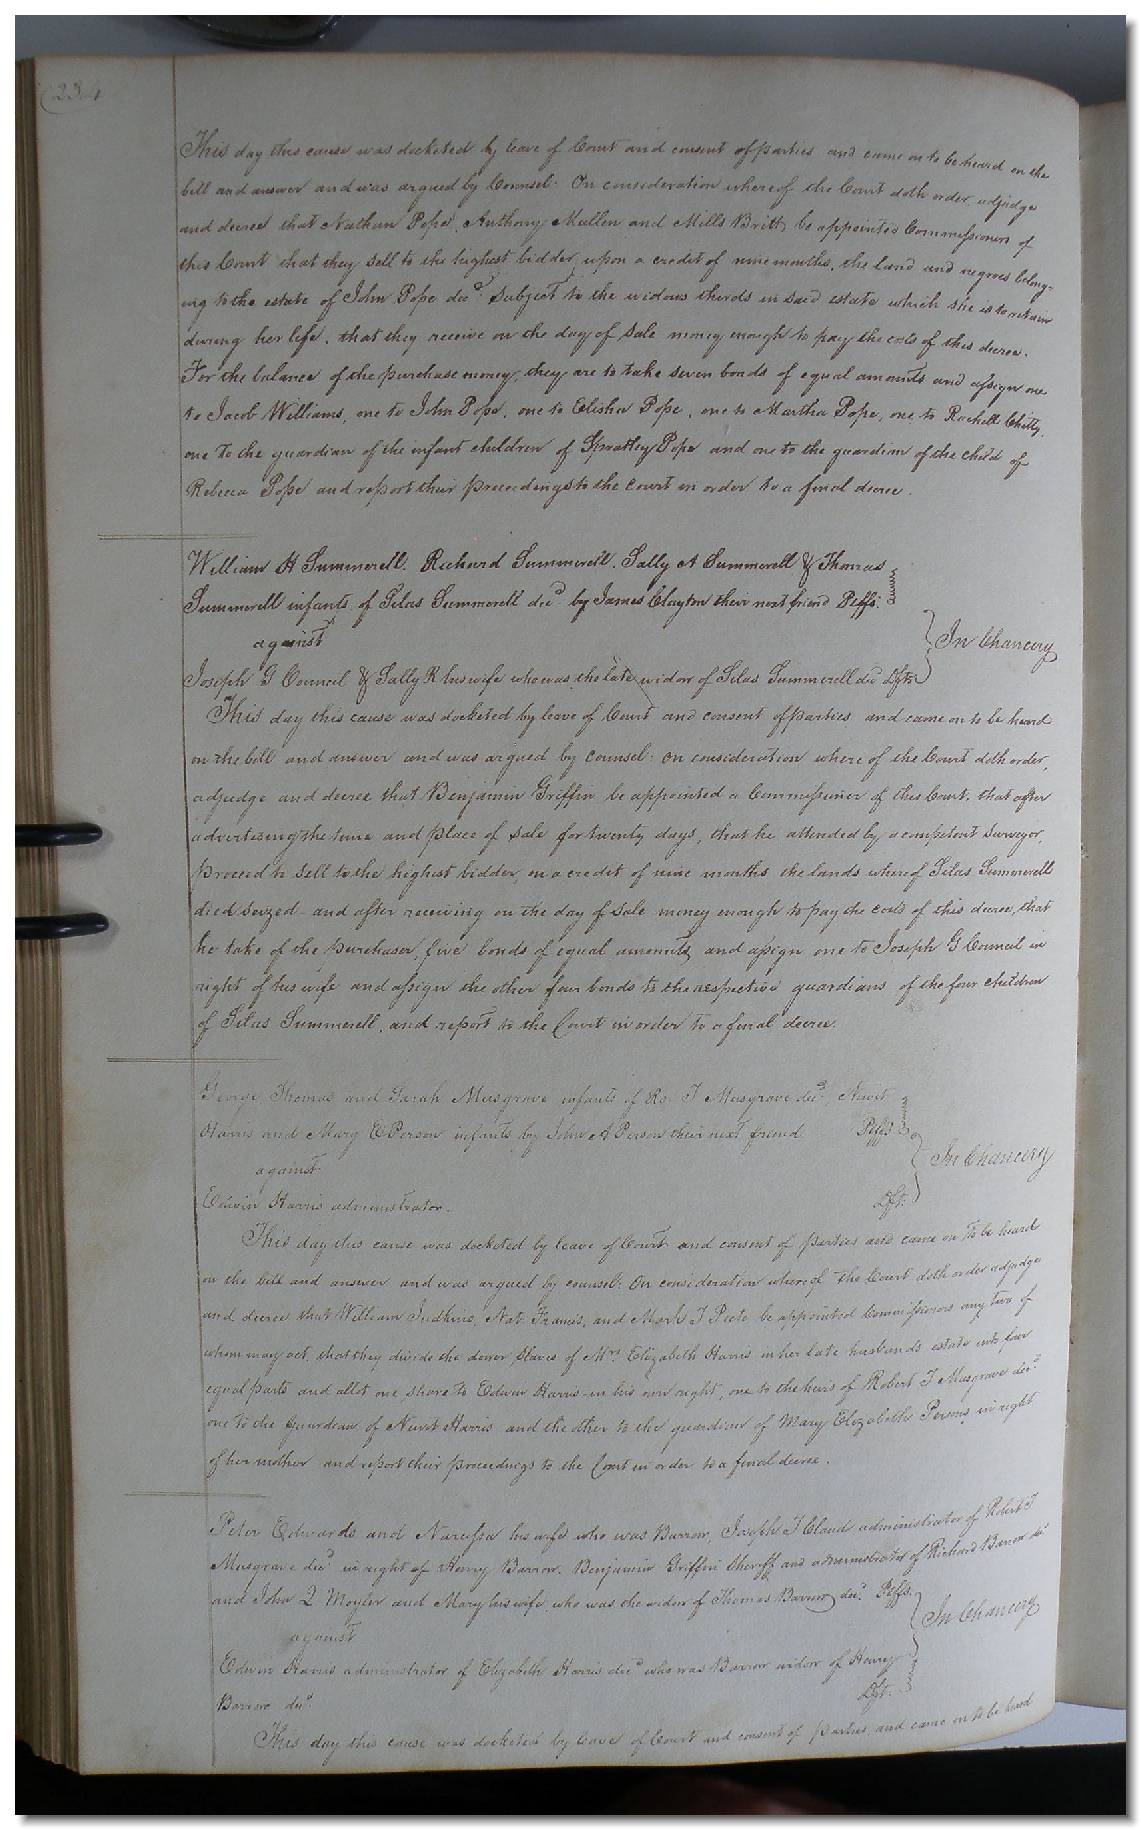 234
This day this cause was docketed by leave of Court and consent of parties and came on to be heard on the
bill and answer and was argued by Counsel: On consideration whereof the Court doth order, adjudge
and decree that Nathan Pope, Anthony Mullen and Mills Britt be appointed Commissioners of
this Court that they sell to the highest bidder, upon a credit of nine months, the land and negroes belong-
ing to the estate of John Pope decd. Subject to the widows thirds in said estate which she is to retain
during her life, that they receive on the day of sale money enough to pay the costs of this decree.
For the balance of the purchase money, they are to take seven bonds of equal amounts and assign one
to Jacob Williams, one to John Pope, one to Elisha Pope, one to Martha Pope, one to Rachell Chitty,
one to the guardian of the infant children of Spratley Pope and one to the guardian of the child of
Rebecca Pope and report their proceedings to the Court in order to a final decree.
William H Summerell, Richard Summerell, Sally A Summerell & Thomas
Summerell infants of Silas Summerell decd by James Clayton their next friend Plffs.
against
In Chancery
Joseph G Council & Sally R his wife who was the late widow of Silas Summerell decd Dfts
This day this cause was docketed by leave of Court and consent of parties and came on to be heard
on the bill and answer and was argued by counsel: on consideration where of the Court doth order,
adjudge and decree that Benjamin Griffin be appointed a Commissioner of this Court, that after
advertising the time and place of sale for twenty days, that he attended by a competent Surveyor,
proceed to sell to the highest bidder, on a credit of nine months the lands whereof Silas Summerell
died seized and after receiving on the day of sale money enough to pay the costs of this decree, that
he take of the purchaser, five bonds of equal amounts, and assign one to Joseph G Council in
right of his wife and assign the other four bonds to the respective guardians of the four children
of Silas Summerell, and report to the Court in order to a final decree.
George Thomas and Sarah Musgrave infants of Ro: T Musgrave decd, Newit
Harris and Mary E Person infants by John A Person their next friend Plffs
against
In Chancery
Edwin Harris administrator. Dft.
This day this cause was docketed by leave of Court and consent of parties and came on to be heard
on the bill and answer and was argued by counsel: On consideration whereof the Court doth order adjudge
and decree that William Judkins, Nat Francis, and Mark T Peete be appointed Commissioners any two of
whom may act, that they divide the dower slaves of Mrs Elizabeth Harris in her late husbands estate into four
equal parts and allot one share to Edwin Harris in his own right, one to the heirs of Robert T Musgrave decd
one to the guardian of Newit Harris and the other to the guardian of Mary Elizabeth Persons in right
of her mother and report their proceedings to the Court in order to a final decree.
Peter Edwards and Narcissa his wife who was Barrow, Joseph T Claud administrator of Robert T
Musgrave decd in right of Henry Barrow, Benjamin Griffin Sheriff and administrator of Richard Barrow decd
and John Q Moyler and Mary his wife, who was the widow of Thomas Barrow decd. Plffs.
against
In Chancery
Edwin Harris administrator of Elizabeth Harris decd who was Barrow widow of Henry
Barrow decd. Dft.
This day this cause was docketed by leave of Court and consent of parties, and came on to be heard